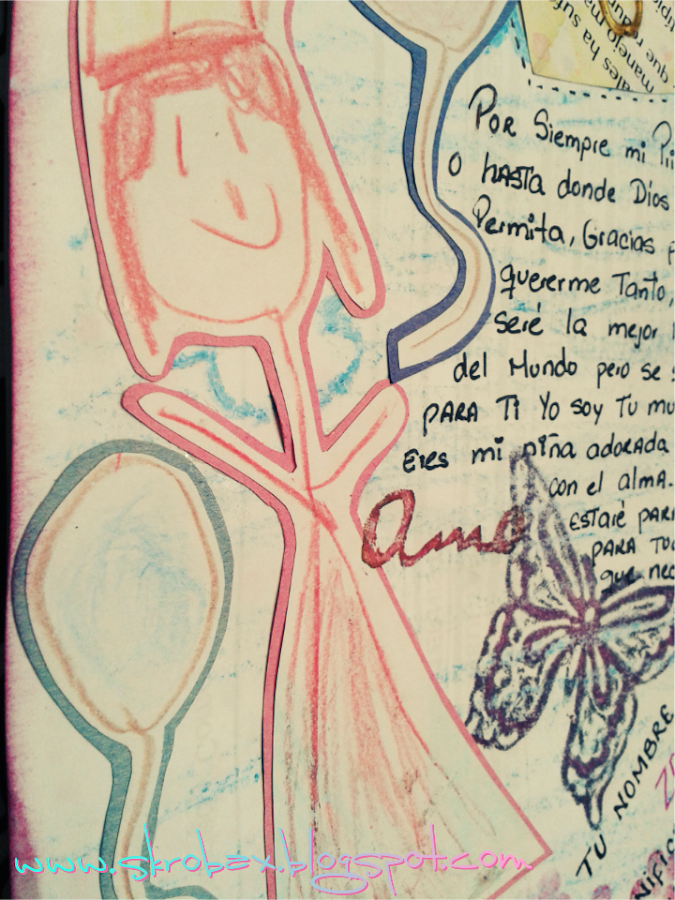 ales ha suf
manejo ma
que redun
lípic
POR Siempre mi Pii
O hasta donde Dios
Permita, Gracias p
quererme Tanto,
seré la mejor
del Mundo pero se s
PARA Ti Yo soy Tu mu
Eres mi niña adorada
con el alma.
Estaré PARA
PARA TOD
que nec
Amo
TU NOMBRE
nific
www.skrobax.blogspot.com